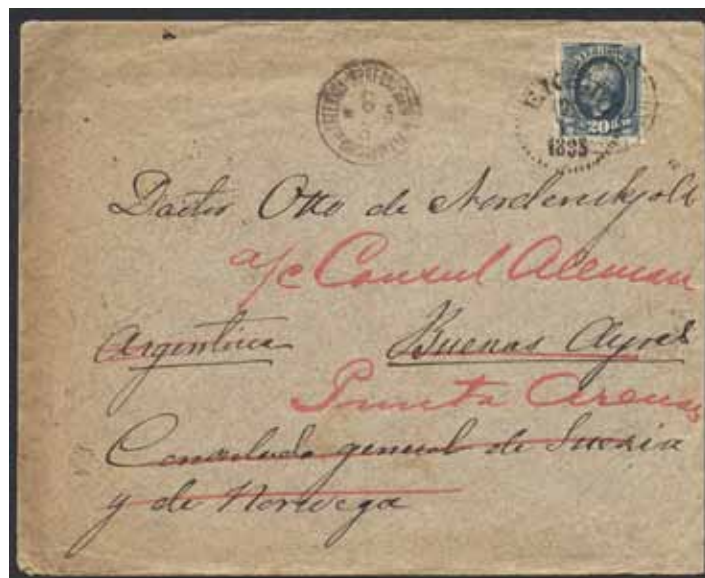 20
1895
Doctor Otto de Nordenskjöld
a/c Consul Aleman
Argentina Buenas Ayres
Punta Arenas
Consulado general de Suecia
y de Norvega